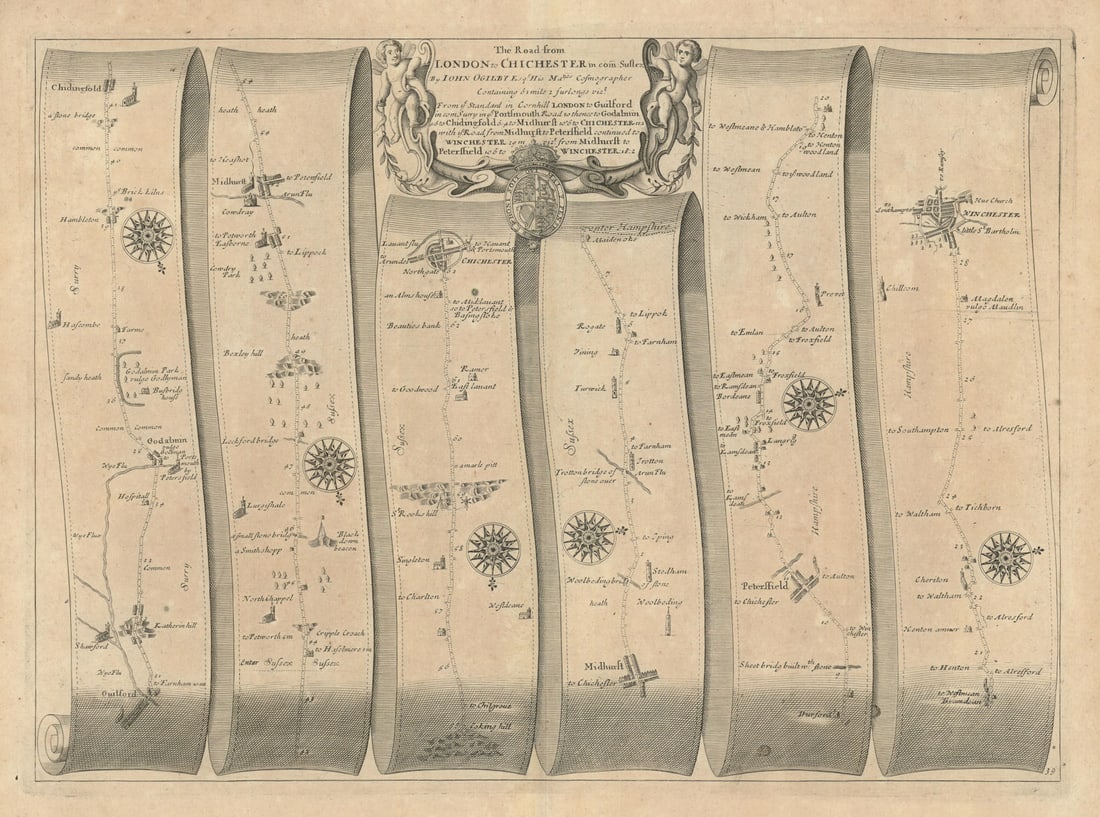 The Road from
LONDON to CHICHESTER in com Sussex
By IOHN OGILBY Esqr. His Maties Cosmographer
Containing 61 mile 2 furlongs vizt.
From ye Standard in Cornhill LONDON to Guilford
in com Surry in ye Portsmouth Road
to Midhurst
to CHICHESTER
with ye Road from Midhurst to Petersfield continued to
WINCHESTER
from Midhurst to
Petersfield
WINCHESTER
Chidingfold
a stone bridg
common
common
ye Brick kilns
Hambleton
Surry
Hascombe
Farme
sandy heath
Godalmin Park
vulgo Godliman
Busbridg
house
common
Common
Godalmin
to Ports
mouth by
Petersfield
Wye Flu
Hospitall
Wye Fluv
Common
Surry
Katherin hill
Shawford
Wye Flu
to Farnham
Guilford
heath
heath
Midhurst
to Petersfield
Arun Flu
Cowdray
to Petworth
Easborne
to Lippock
Cowdry
Park
heath
Bexley hill
Sussex
Lockford bridg
common
Lurgishale
a small stone bridg
Black
down
beacon
a Smiths shopp
North Chappel
to Petworth 5m
Cripple Croach
to Haselmere
Enter Sussex
Sussex
Lavant flu
to Havant
& Portsmouth
to
Arundel
CHICHESTER
Northgate
an Almshouse
to Midlavant
so to Petersfield &
Basingstoke
Beauties bank
Ramer
East lavant
to Goodwood
Sussex
a marle pitt
St Rooks hill
Singleton
to Charlton
Westdeane
to Chilgrove
Coking hill
enter Hampshire
Maiden oke
to Lippok
Rogate
to Farnham
Fining
Turwick
Sussex
to Farnham
Trotton
Arun Flu
Trotton bridg of
stone over
to Iping
Stedham
Woolbeding bridg
heath
Woolbeding
Midhurst
to Chichester
20
to Westmeane & Hambleton
to Henton
to Henton
wood land
to Westmean
to ye wood land
to Wickham
to Aulton
Privet
to Emlan
to Aulton
to Froxfield
to Eastmean
to Froxfield
to Ramsdean
Bordeane
to East
mean
Froxfield
Langrig
Hampshire
Petersfield
to Aulton
to Chichester
to Win
chester
Sheet bridg built wth stone
Durford
to Southampton
Hide Church
WINCHESTER
little St Bartholm
Chillcom
Magdalen
vulgo Maudlin
Hampshire
to Southampton
to Alresford
to Waltham
to Tichborn
Cheriton
to Waltham
to Alresford
to Henton
to Alresford
to Westmean
Bramdean
39